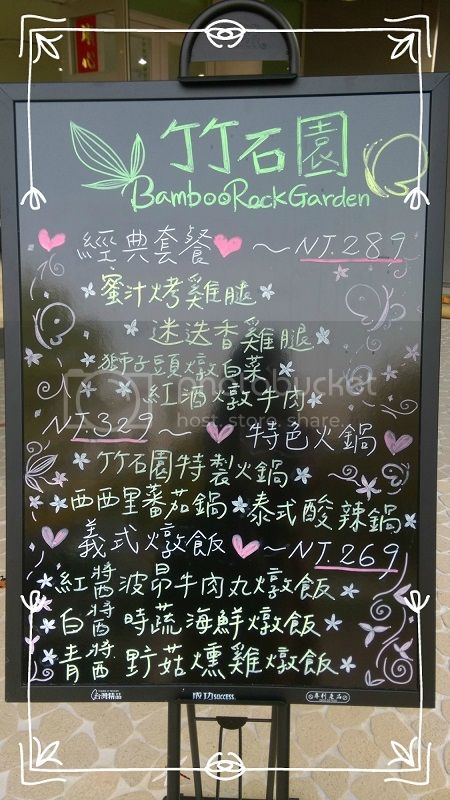 竹石園
BambooRockGarden
經典套餐 ～NT.289
蜜汁烤雞腿
迷迭香雞腿
獅子頭燉白菜
紅酒燉牛肉
NT.329～ 特色火鍋
竹石園特製火鍋
西西里蕃茄鍋 泰式酸辣鍋
義式燉飯 ～NT.269
紅醬波昂牛肉丸燉飯
白醬時蔬海鮮燉飯
青醬野菇燻雞燉飯
photobucket
host. store. share.
台灣精品 成功 SUCCESS. 專利產品